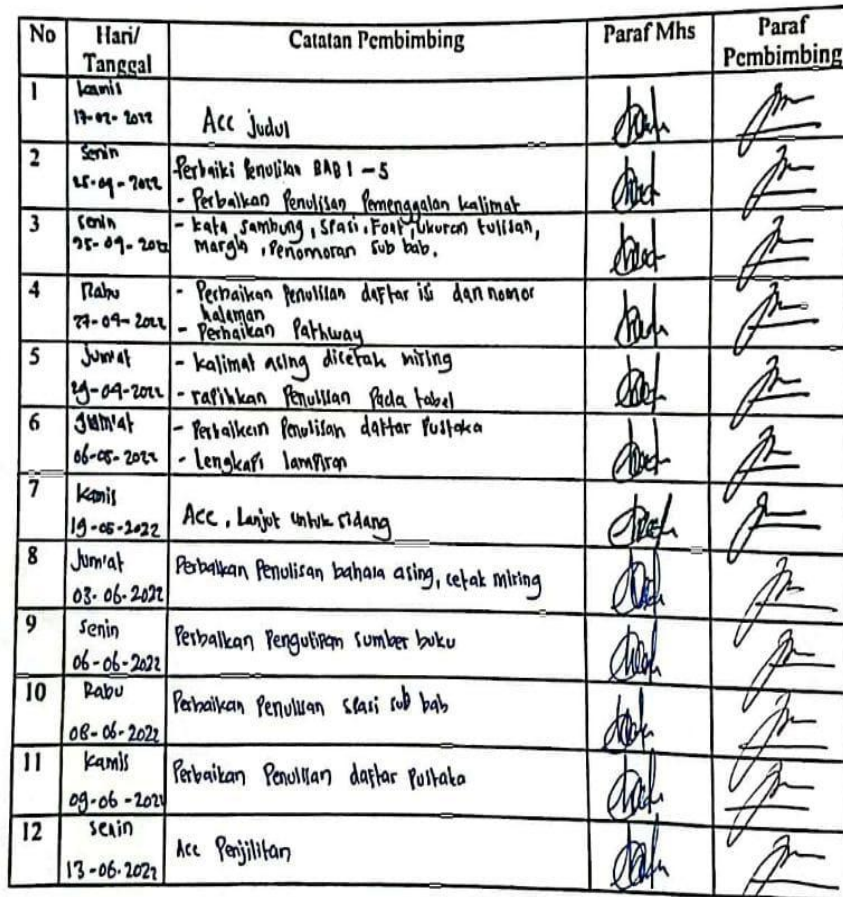 No Hari/ Tanggal Catatan Pembimbing Paraf Mhs Paraf Pembimbing
1 Kamis
17-02-2022 Acc Judul
2 Senin
25-04-2022 Perbaiki Penulisan BAB 1 - 5
- Perbaikan Penulisan Pemenggalan kalimat
3 Senin
25-04-2022 - kata sambung, spasi, Font, Ukuran tulisan,
margin, Penomoran sub bab.
4 Rabu
27-04-2022 - Perbaikan Penulisan daftar isi dan nomor
halaman
- Perbaikan Pathway
5 Jum'at - kalimat asing dicetak miring
29-04-2022 - rapihkan Penulisan Pada tabel
6 Jum'at - Perbaikan Penulisan daftar Pustaka
06-05-2022 - Lengkapi lampiran
7 Kamis
19-05-2022 Acc, Lanjut untuk sidang
8 Jum'at
03-06-2022 Perbaikan Penulisan bahasa asing, cetak miring
9 Senin
06-06-2022 Perbaikan Pengutipan sumber buku
10 Rabu
08-06-2022 Perbaikan Penulisan spasi sub bab
11 Kamis
09-06-2022 Perbaikan Penulisan daftar Pustaka
12 Senin
13-06-2022 Acc Penjilitan